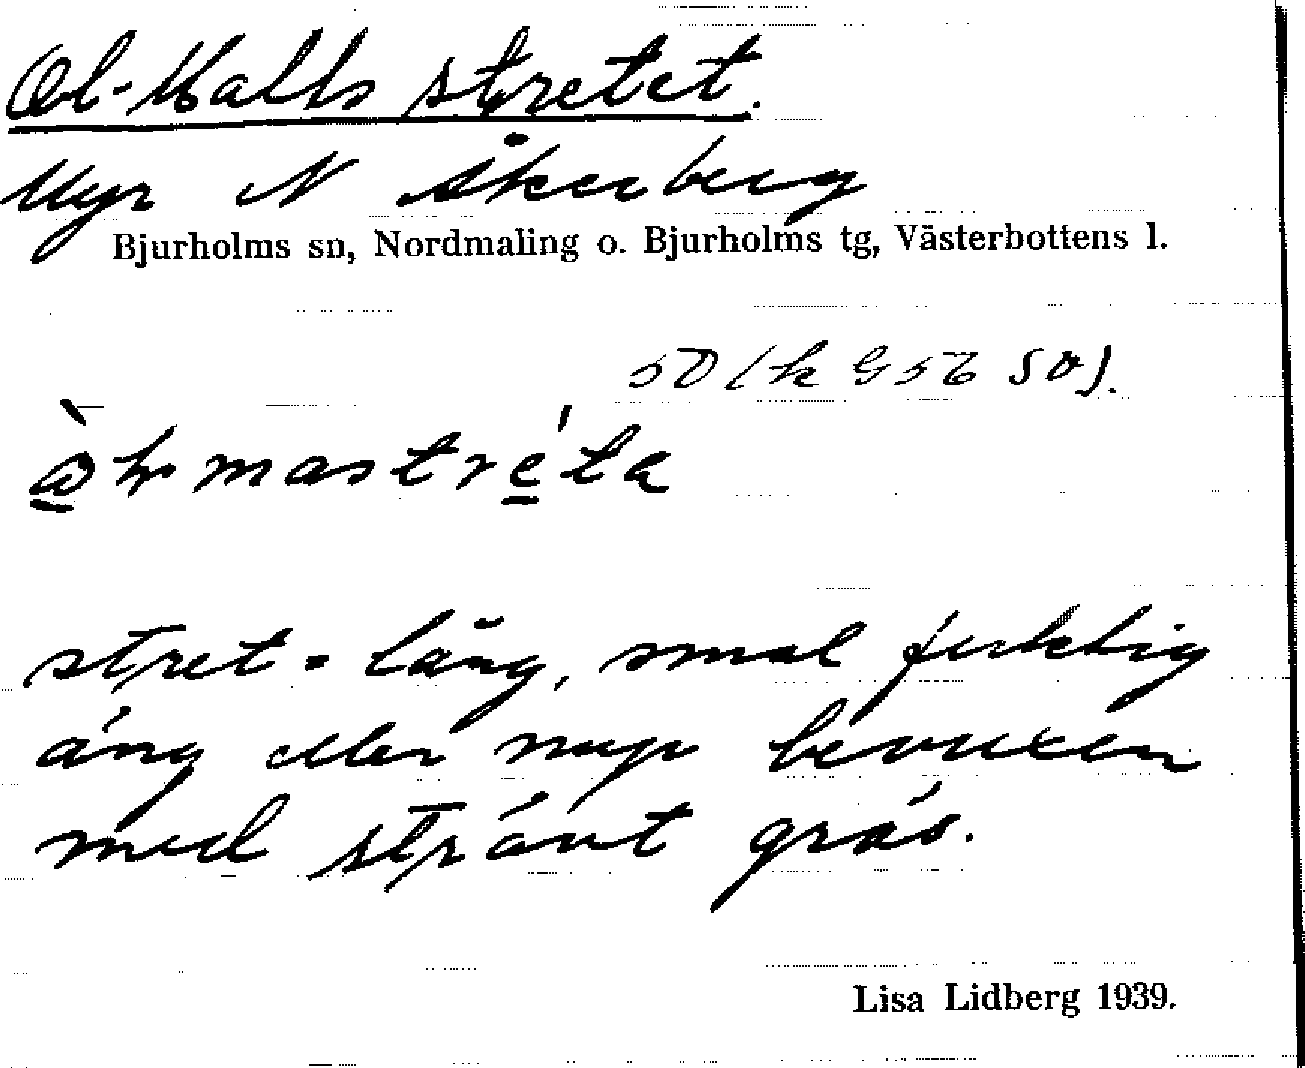 Ol-Matts stretet.
Myr N Åkerberg
Bjurholms sn, Nordmaling o. Bjurholms tg, Västerbottens l.
50
mastréta
stret = lång, smal fuktig
äng eller myr bevuxen
med strävt gräs.
Lisa Lidberg 1939.